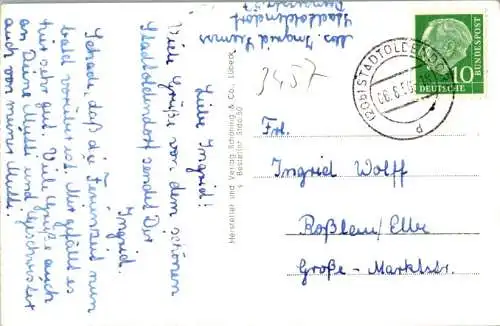 Abs. Ingrid
Stadtoldendorf
Liebe Ingrid!
Viele Grüße von dem schönen
Stadtoldendorf sendet Dir
Ingrid.
Schade, daß die Ferienzeit nun
bald vorüber ist. Mir gefällt es
hier sehr gut. Viele Grüße auch
an Deine Mutti und Geschwister
auch von meiner Mutti.
Hersteller und Verlag Schöning & Co., Lübeck
Bestellnr. Stdo 50
3457
(20b) STADTOLDENDORF
d
10
DEUTSCHE
BUNDESPOST
Frl.
Ingrid Wolff
Roßlau/Elbe
Große-Marktstr.